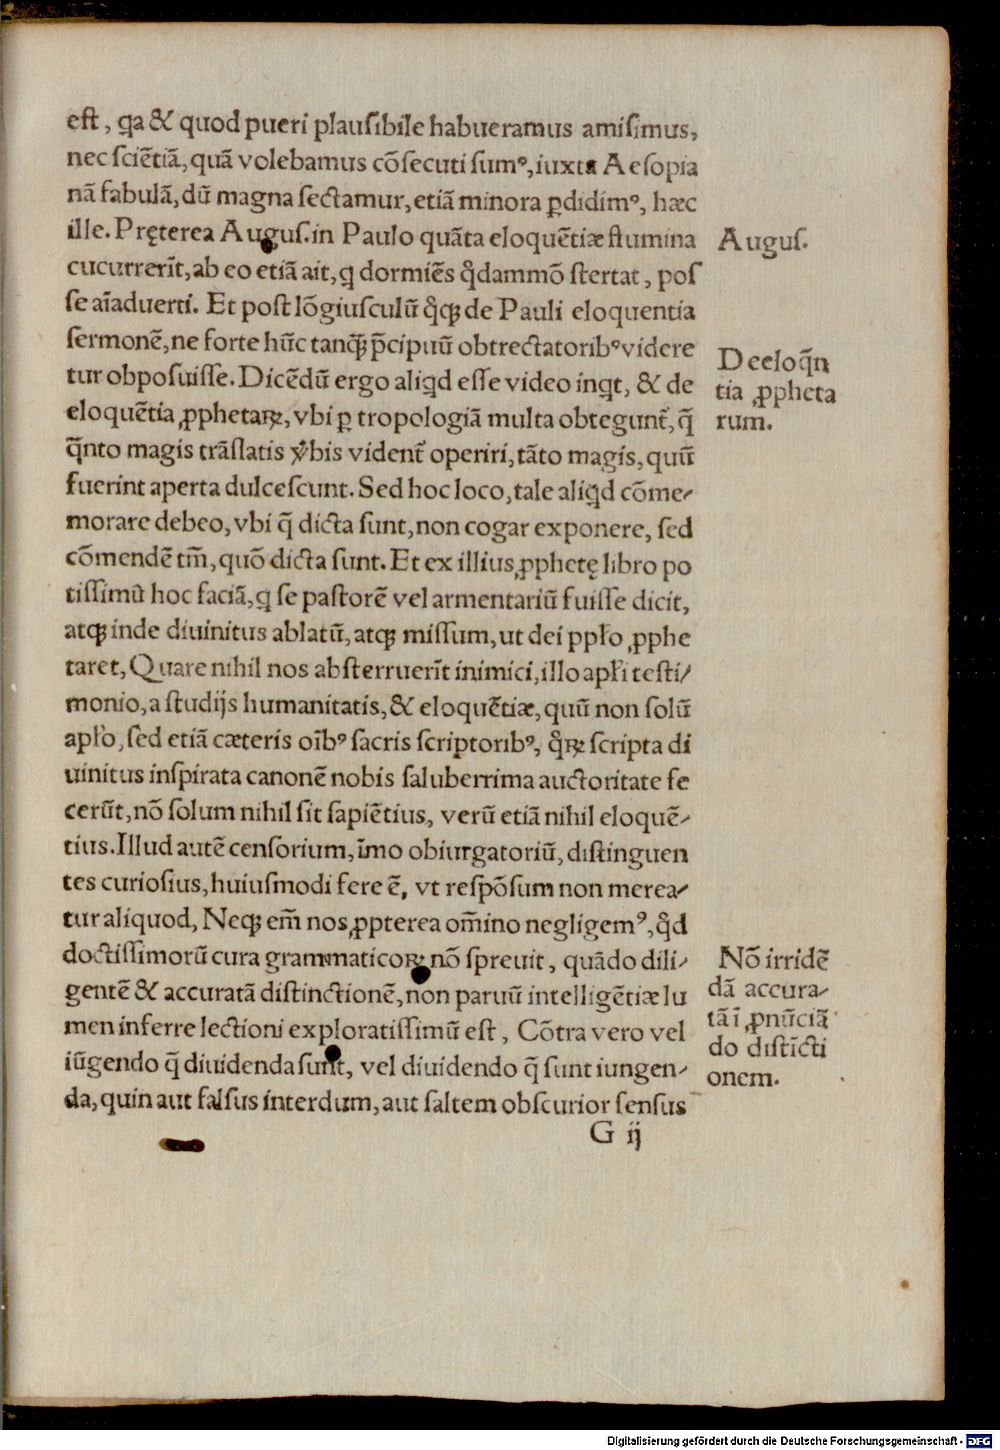 est, ꝗa & quod pueri plausibile habueramus amisimus,
nec sciẽtiã, quã volebamus cõsecuti sumꝰ, iuxta Aesopia
nã fabulã, dũ magna sectamur, etiã minora ꝑdidimꝰ, hæc
ille. Pręterea Augus. in Paulo quãta eloquẽtiæ flumina
Augus.
cucurrerĩt, ab eo etiã ait, ꝗ dormiẽs q̃dammõ stertat, pos
se aĩaduerti. Et post lõgiusculũ q̃qꝫ de Pauli eloquentia
sermonẽ, ne forte hũc tanq̃ꝫ p̃cipuũ obtrectatoribꝰ videre
tur obposuisse. Dicẽdũ ergo aliꝗd esse video inꝗt, & de
eloquẽtia ꝓphetaꝝ, vbi ꝑ tropologiã multa obtegunt᷑, q̃
De eloq̃n
tia ꝓpheta
rum.
q̃nto magis trãslatis v̓bis vident᷑ operiri, tãto magis, quũ
fuerint aperta dulcescunt. Sed hoc loco, tale aliꝗd cõme⸗
morare debeo, vbi q̃ dicta sunt, non cogar exponere, sed
cõmendẽ tm̃, quõ dicta sunt. Et ex illius ꝓphetę libro po
tissimũ hoc faciã, ꝗ se pastorẽ vel armentariũ fuisse dicit,
atqꝫ inde diuinitus ablatũ, atqꝫ missum, ut dei pplo ꝓphe
taret, Quare nihil nos absterruerĩt inimici, illo apłi testi⸗
monio, a studijs humanitatis, & eloquẽtiæ, quũ non solũ
apło, sed etiã cæteris oĩbꝰ sacris scriptoribꝰ, q̃ꝝ scripta di
uinitus inspirata canonẽ nobis saluberrima auctoritate fe
cerũt, nõ solum nihil sit sapiẽtius, verũ etiã nihil eloquẽ⸗
tius. Illud autẽ censorium, ĩmo obiurgatoriũ, distinguen
tes curiosius, huiusmodi fere ẽ, vt respõsum non merea⸗
tur aliquod, Neqꝫ em̃ nos ꝓpterea om̃ino negligemꝰ, q̃d
doctissimorũ cura grammaticoꝝ nõ spreuit, quãdo dili⸗
gentẽ & accuratã distinctionẽ, non paruũ intelligẽtiæ lu
men inferre lectioni exploratissimũ est, Cõtra vero vel
iũgendo q̃ diuidenda sunt, vel diuidendo q̃ sunt iungen⸗
da, quin aut falsus interdum, aut saltem obscurior sensus
Nõ irridẽ
dã accura⸗
tã ĩ ꝓnũciã
do distĩcti
onem.
G ij
Digitalisierung gefördert durch die Deutsche Forschungsgemeinschaft - DFG